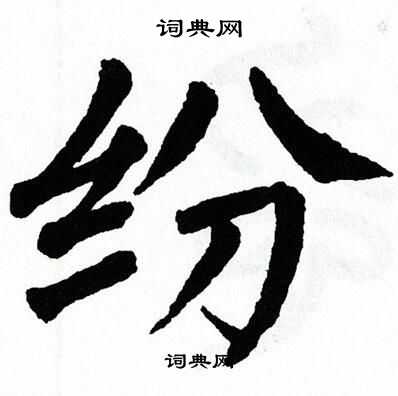 词典网
纷
词典网